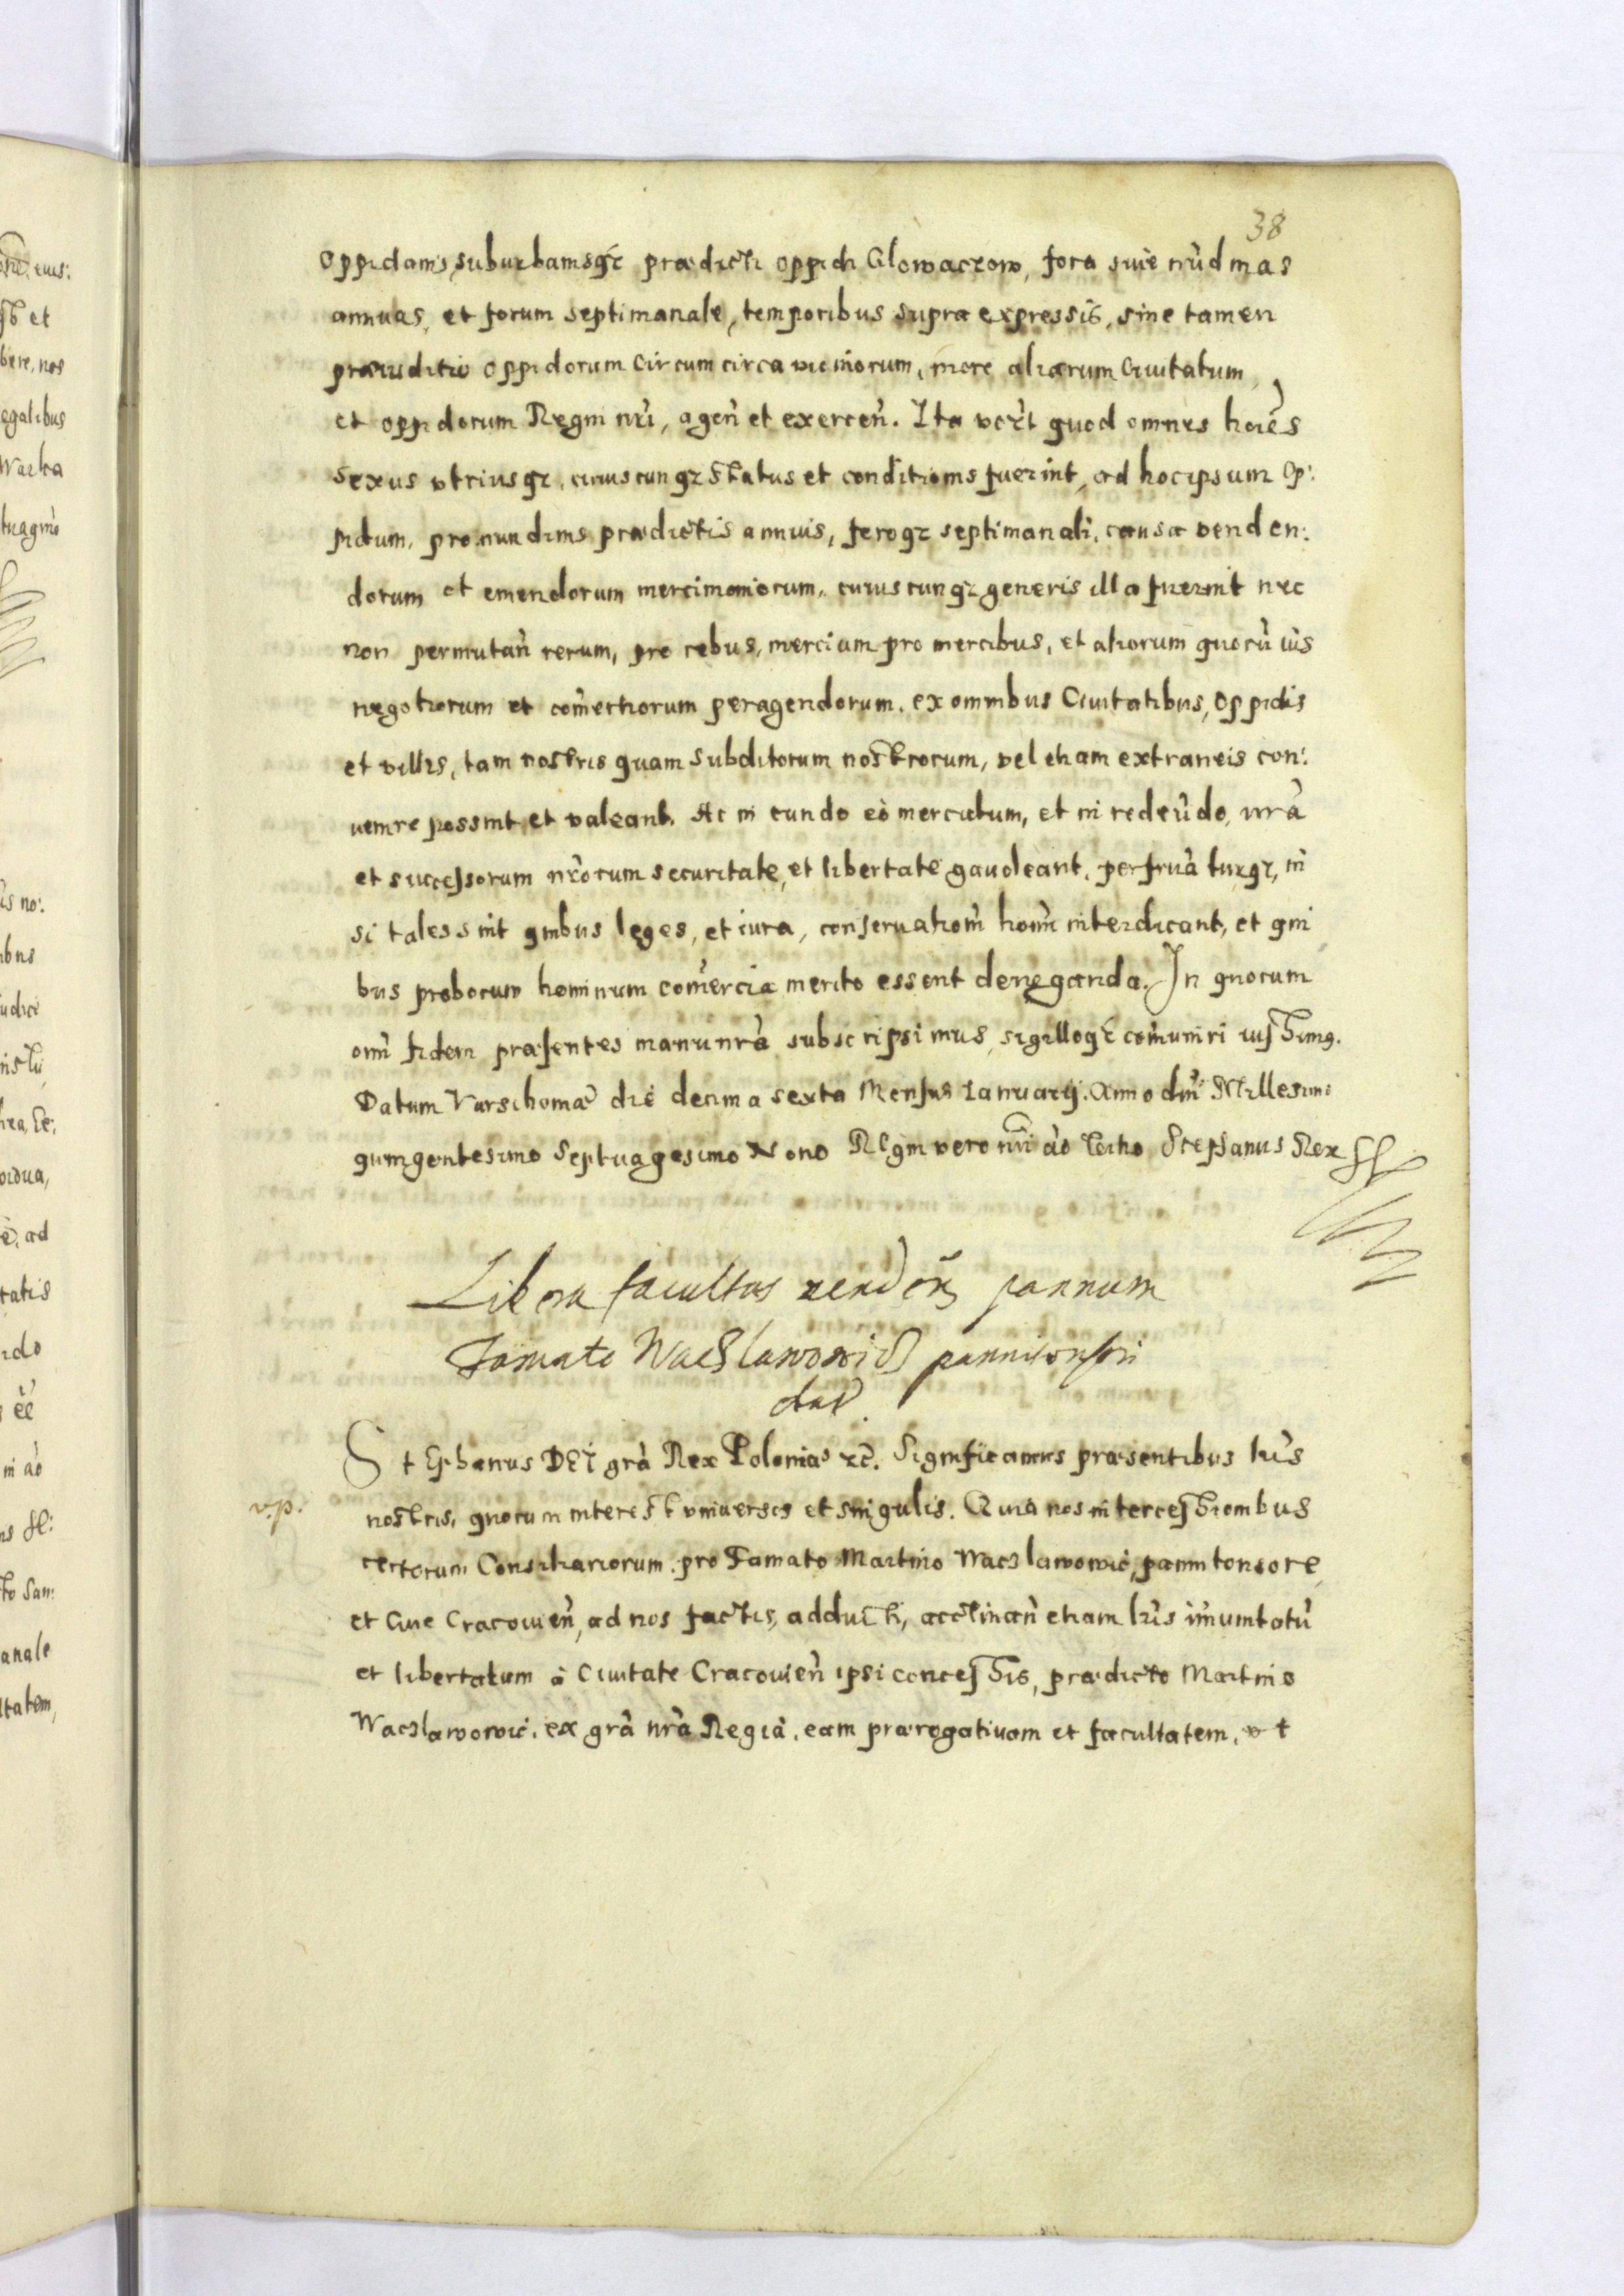 38
oppidanis, suburbanisqz prædicti oppidi Glowaczow, fora siue nūdinas
annuas, et forum septimanale, temporibus supra expressis, sine tamen
præiuditio oppidorum circumcirca vicinorum, more aliarum Ciuitatum
et oppidorum Regni nri, agen et exercen. Ita vt quod omnes hoies
sexus vtriusqz, cuiuscunqz status et conditionis fuerint, ad hoc ipsum Op:
pidum, pro nundinis prædictis annuis, foroqz septimanali, causa venden:
dorum et emendorum mercimoniorum, cuiuscunqz generis illa fuerint nec
non permutan rerum, pro rebus, mercium pro mercibus, et aliorum quorūuis
negotiorum et comertiorum peragendorum, ex omnibus Ciuitatibus, Oppidis
et villis, tam nostris quam subditorum nostrorum, vel etiam extraneis con:
uenire possint et valeant. Ac in eundo eò mercatum, et in redeūdo, nra
et successorum nrorum securitate, et libertate gaudeant, perfruāturqz, ni
si tales sint quibus leges, et iura, conseruationi homi interdicant, et qui
bus proborum hominum comercia merito essent deneganda. In quorum
omi fidem præsentes manu nra subscripsimus, sigilloqz comuniri iussimus.
Datum Varschoviæ die decima sexta Mensis Ianuarij. Anno dni Millesimo
quingentesimo Septuagesimo Nono Regni vero nri ao tertio Stephanus Rex SS
Libera facultas venden pannum
Famato Waczlawowicz pannitonsori
datur
Stephanus DEI gra Rex Poloniæ etc. Significamus præsentibus lris
v.p.
nostris, quorum interest vniuersis et singulis. Quia nos intercessionibus
certorum Consiliariorum pro Famato Martino Waczlawowic, pannitonsore,
et Ciue Cracouien, ad nos factis, adducti, acclinan etiam lris imunitatū
et libertatum à Ciuitate Cracouien ipsi concessis, prædicto Martino
Waczlawowic, ex gra nra Regia, eam prærogatiuam et facultatem, vt